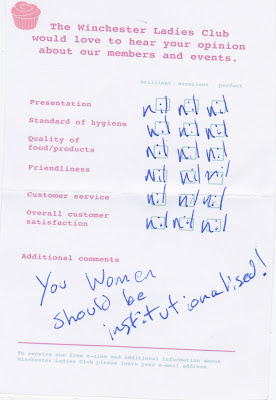 The Winchester Ladies Club
would love to hear your opinion
about our members and events.
brilliant excellent perfect
Presentation nil nil nil
Standard of hygiene nil nil nil
Quality of
food/products nil nil nil
Friendliness nil nil nil
Customer service nil nil nil
Overall customer
satisfaction nil nil nil
Additional comments
You Women
should be
institutionalised!
To receive our free e-zine and additional information about
Winchester Ladies Club please leave your e-mail address